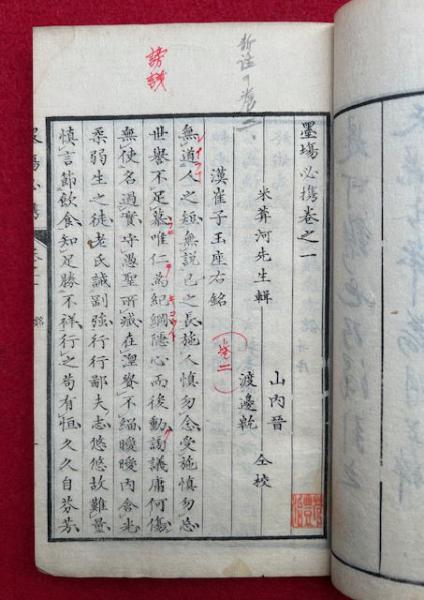 墨場必携卷之一
米葊河先生輯
山内晉
渡邊乾
仝校
漢崔子玉座右銘
無道人之短無説己之長施人慎勿念受施慎勿忘
世譽不足慕唯仁為紀綱隱心而後動謗議庸何傷
無使名過實守愚聖所臧在湼貴不緇曖曖内含光
柔弱生之徒老氏誡剛強行行鄙夫志悠悠故難量
慎言節飲食知足勝不祥行之苟有恒久久自芬芳
謗議